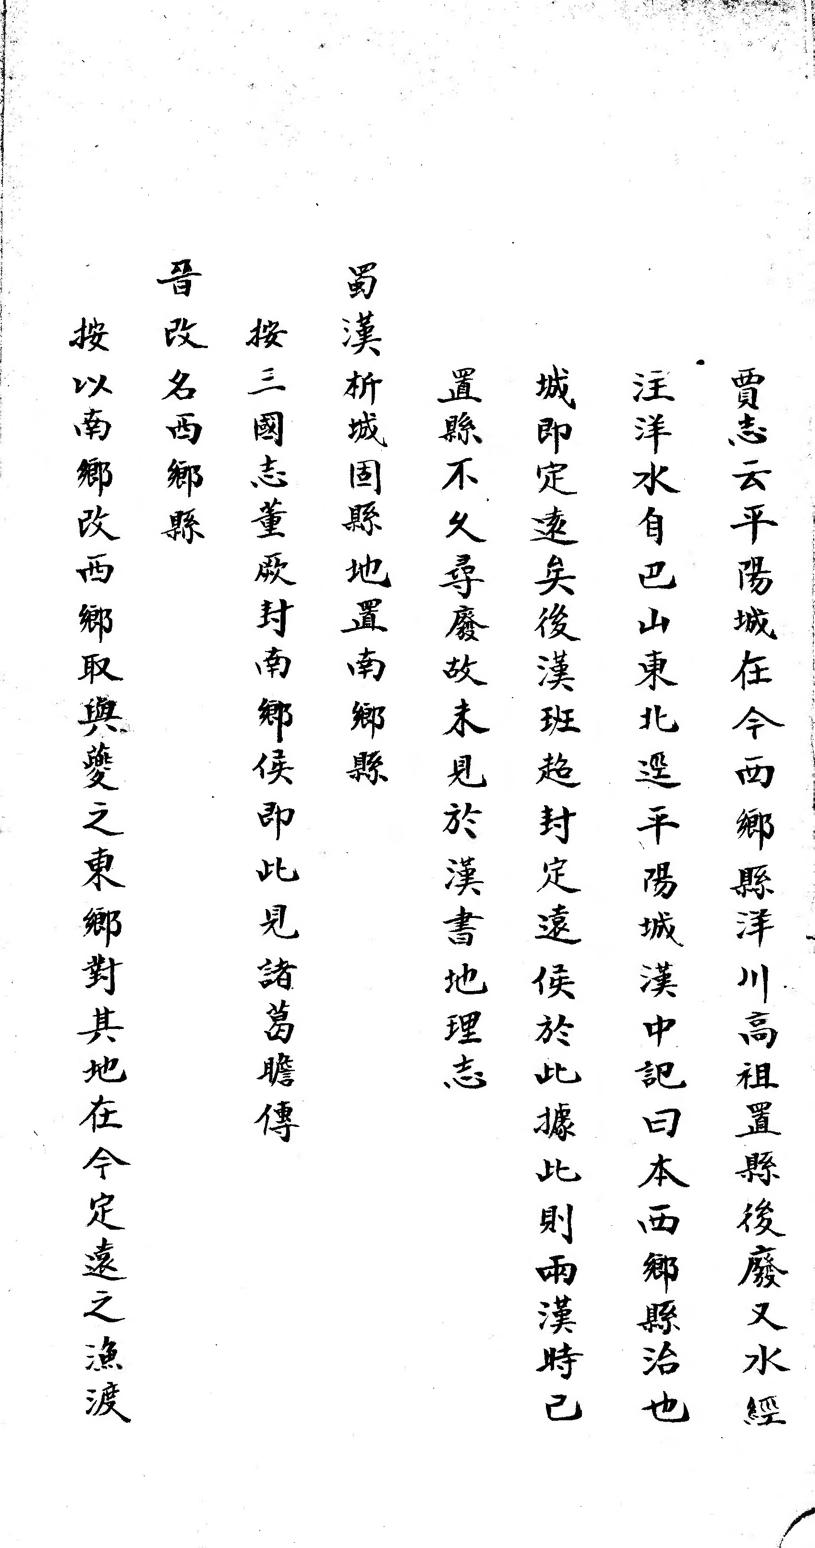 賈志云平陽城在今西鄉縣洋川高祖置縣後廢又水經
注洋水自巴山東北逕平陽城漢中記曰本西鄉縣治也
城即定遠矣後漢班超封定遠侯於此據此則兩漢時已
置縣不久尋廢故未見於漢書地理志
蜀漢析城固縣地置南鄉縣
按三國志董厥封南鄉侯即此見諸葛瞻傳
晉改名西鄉縣
按以南鄉改西鄉取與夔之東鄉對其地在今定遠之漁渡